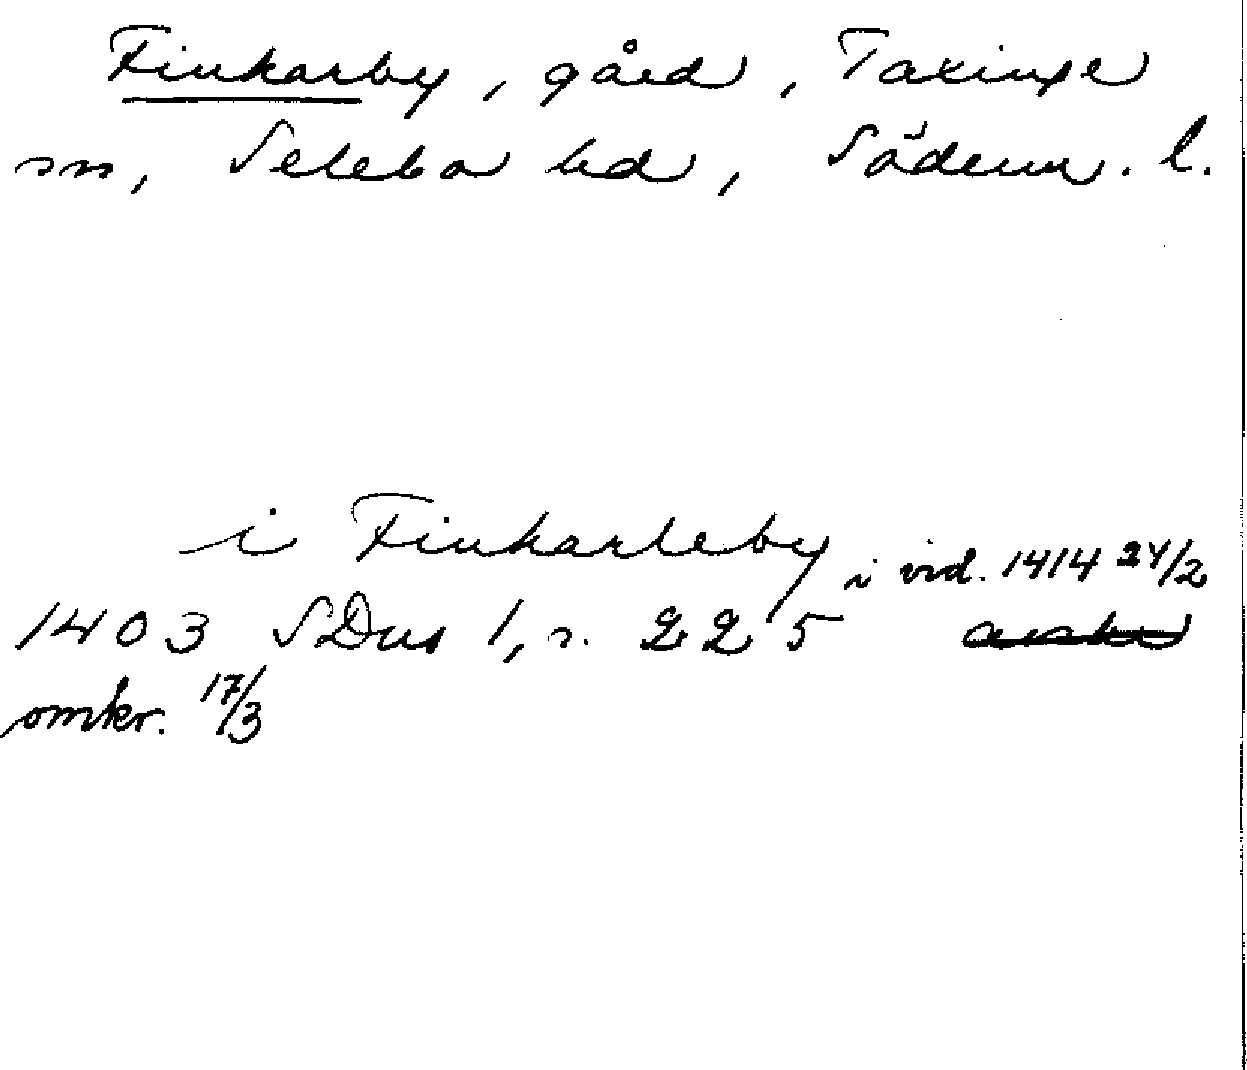 Finkarby, gård, Taxinge
sn, Selebo hd, Söderm. l.
i Finkarleby i vid. 1414 24/2
1403 SDns 1, s. 225
omkr. 17/3